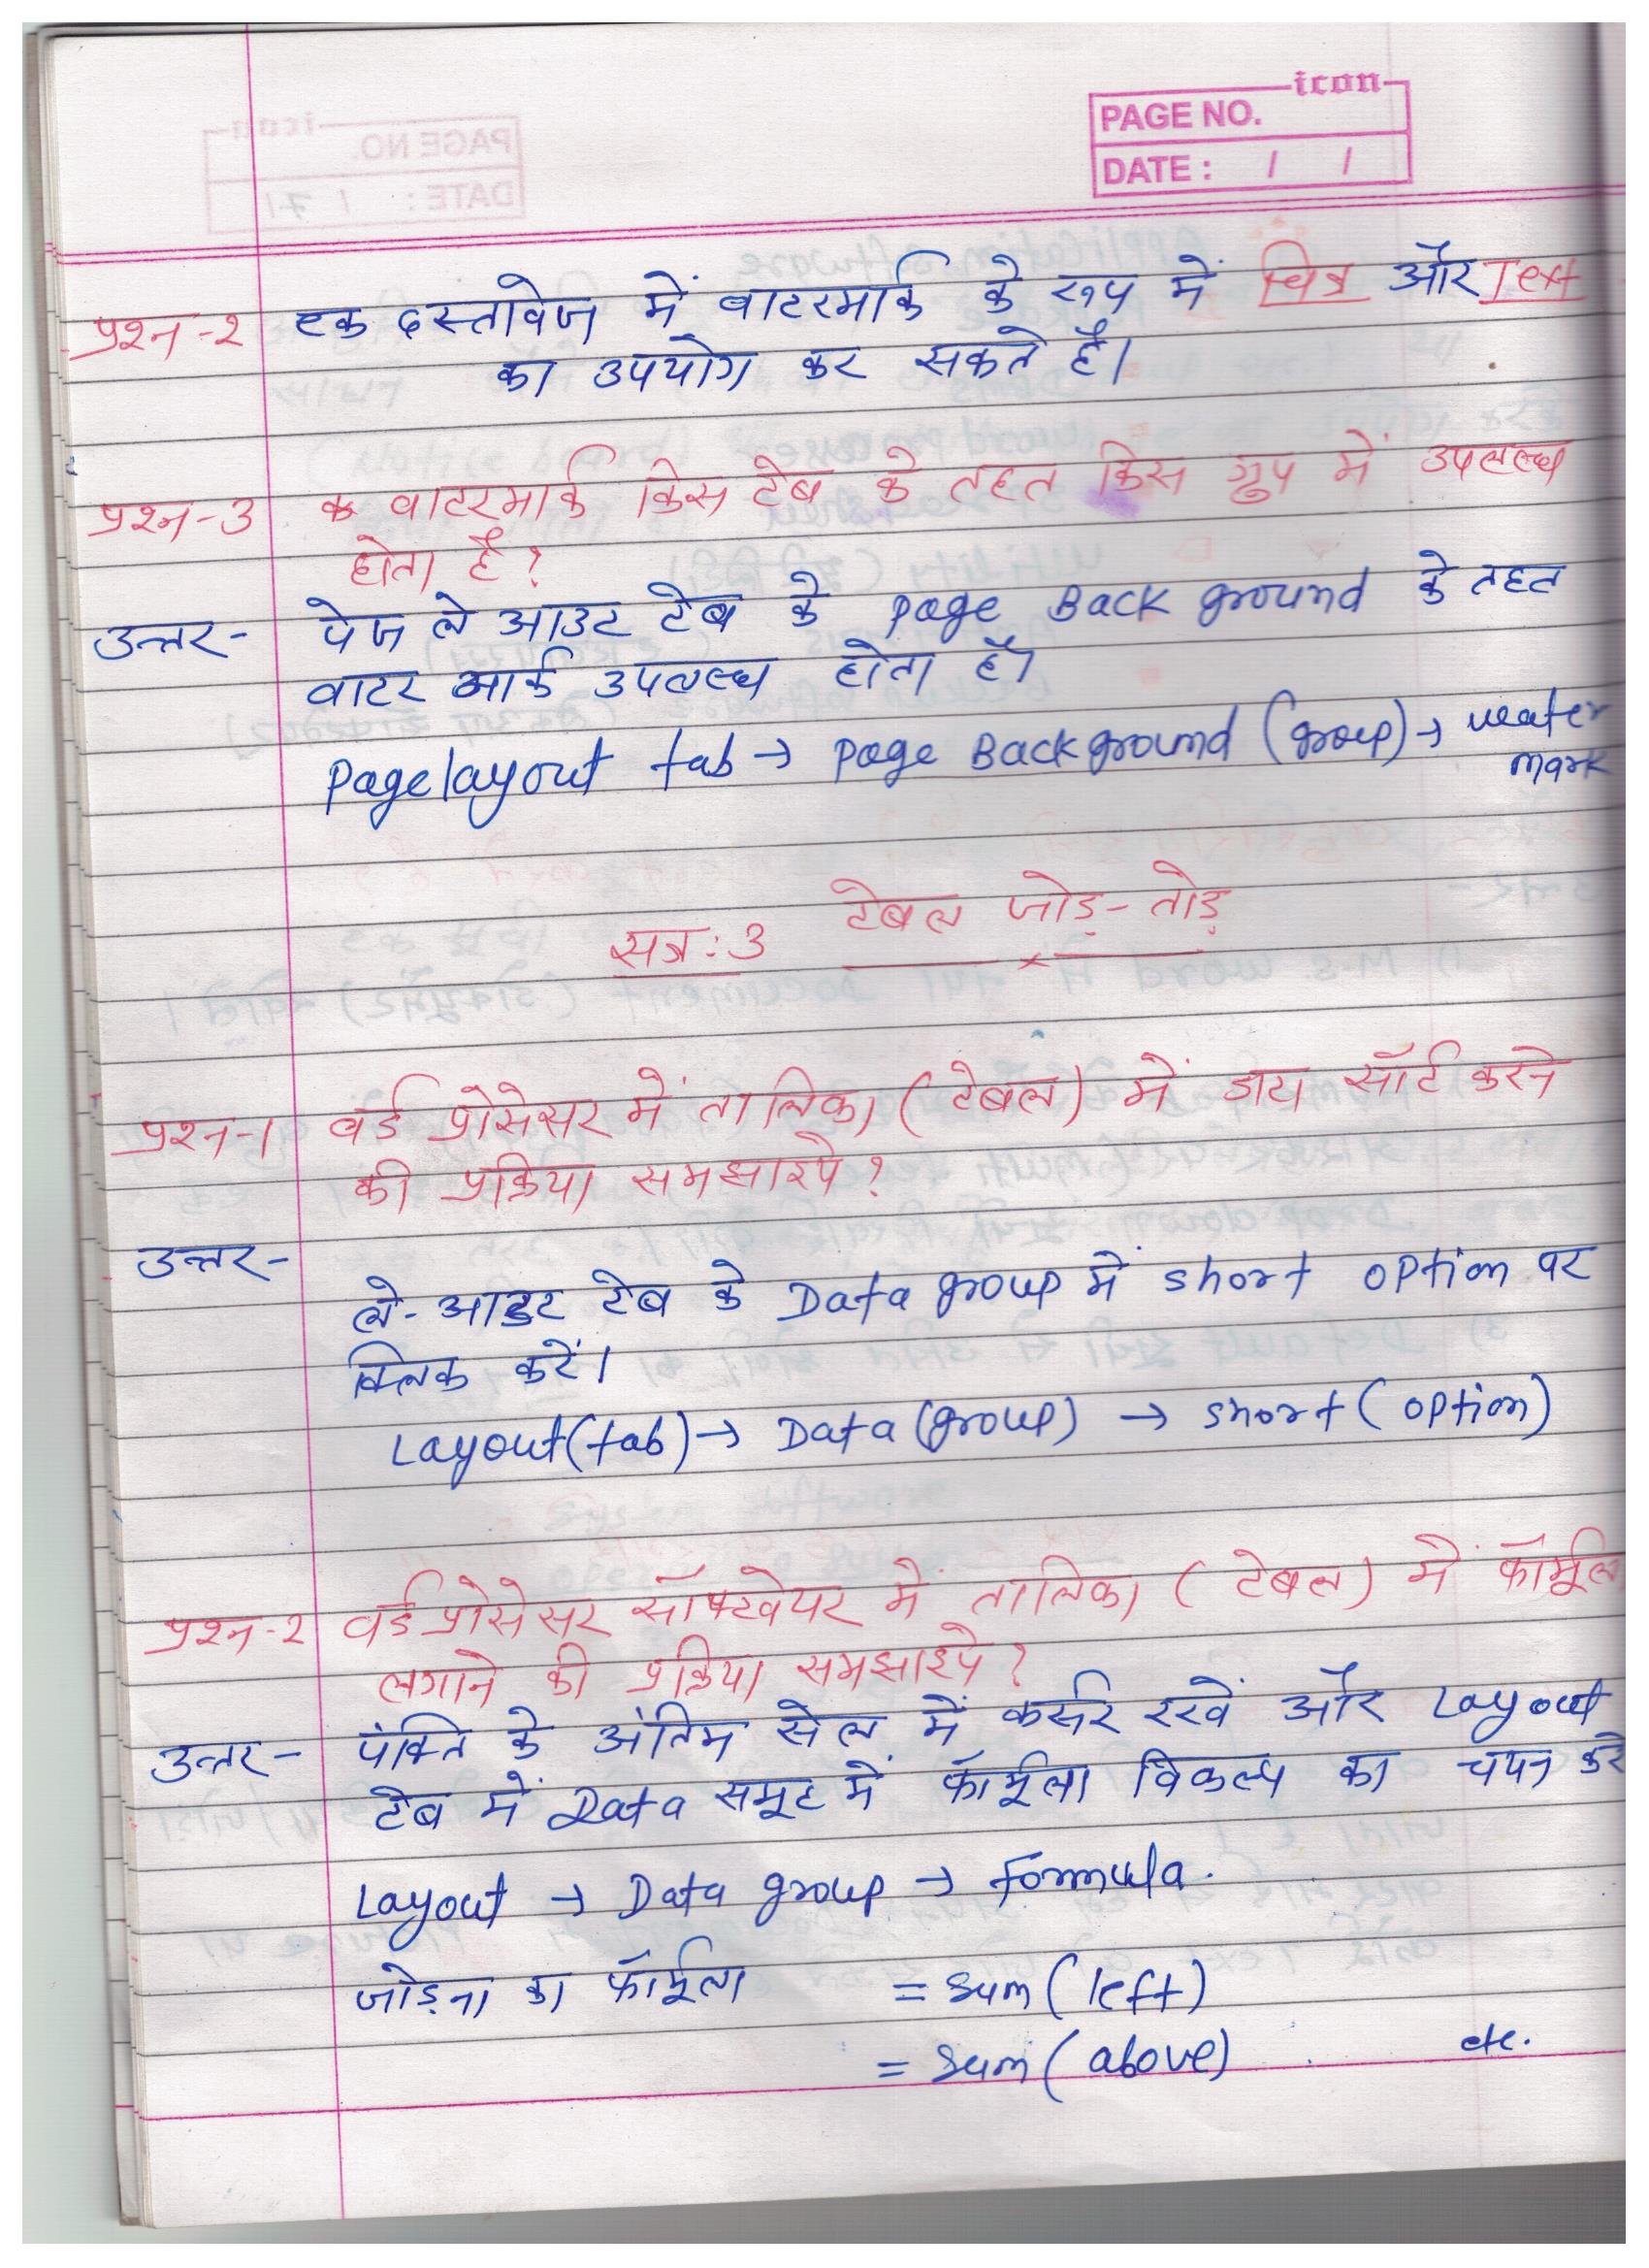 icon
PAGE NO.
DATE : / /
प्रश्न-२ एक दस्तावेज में वाटरमार्क के रूप में चित्र और Text
का उपयोग कर सकते है।
प्रश्न-3 वाटरमार्क किस टेब के तहत किस ग्रुप में उपलब्ध
होता है ?
उत्तर- पेज ले आउट टेब के page Back ground के तहत
वाटर मार्क उपलब्ध होता है।
Pagelayout tab → page Background (group) → water
mark
सत्र:3 टेबल जोड़-तोड़
प्रश्न-1 वर्ड प्रोसेसर में तालिका (टेबल) में डाटा सॉर्ट करने
की प्रक्रिया समझाइये ?
उत्तर-
ले-आउट टेब के Data group में short option पर
क्लिक करें।
Layout(tab) → Data (group) → short (option)
प्रश्न-२ वर्डप्रोसेसर सॉफ्टवेयर में तालिका (टेबल) में फॉर्मूल
लगाने की प्रक्रिया समझाइये ?
उत्तर- पंक्ति के अंतिम सेल में कर्सर रखें और Layout
टेब में Data समूह में फॉर्मूला विकल्प का चयन करे
Layout → Data group → formula.
जोड़ना का फॉर्मूला = sum (left)
= sum (above) etc.